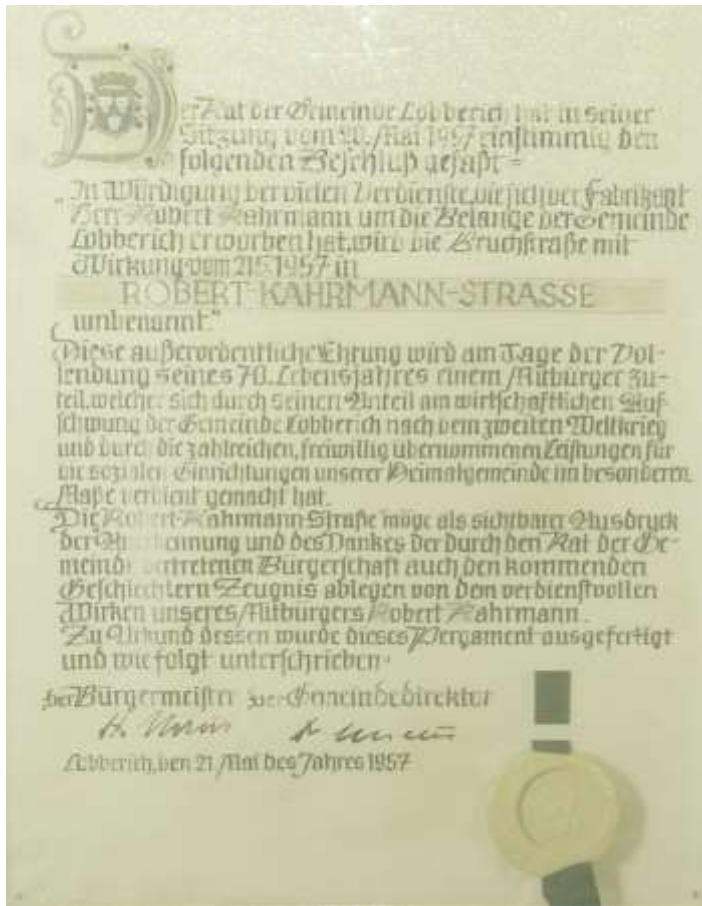 Der Rat der Gemeinde Lobberich hat in seiner
Sitzung vom 20. Mai 1957 einstimmig den
folgenden Beschluß gefaßt =
"In Würdigung der vielen Verdienste, die sich der Fabrikant
Herr Robert Kahrmann um die Belange der Gemeinde
Lobberich erworben hat, wird die Bruchstraße mit
Wirkung vom 21.5.1957 in
ROBERT-KAHRMANN-STRASSE
umbenannt."
Diese außerordentliche Ehrung wird am Tage der Vol-
lendung seines 70. Lebensjahres einem Mitbürger zu-
teil, welcher sich durch seinen Anteil am wirtschaftlichen Auf-
schwung der Gemeinde Lobberich nach dem zweiten Weltkrieg
und durch die zahlreichen, freiwillig übernommenen Leistungen für
die sozialen Einrichtungen unserer Heimatgemeinde im besonderen
Maße verdient gemacht hat.
Die Robert-Kahrmann-Straße möge als sichtbarer Ausdruck
der Anerkennung und des Dankes der durch den Rat der Ge-
meinde vertretenen Bürgerschaft auch den kommenden
Geschlechtern Zeugnis ablegen von dem verdienstvollen
Wirken unseres Mitbürgers Robert Kahrmann.
Zu Urkund dessen wurde dieses Pergament ausgefertigt
und wie folgt unterschrieben:
der Bürgermeister der Gemeindedirektor
Lobberich, den 21. Mai des Jahres 1957